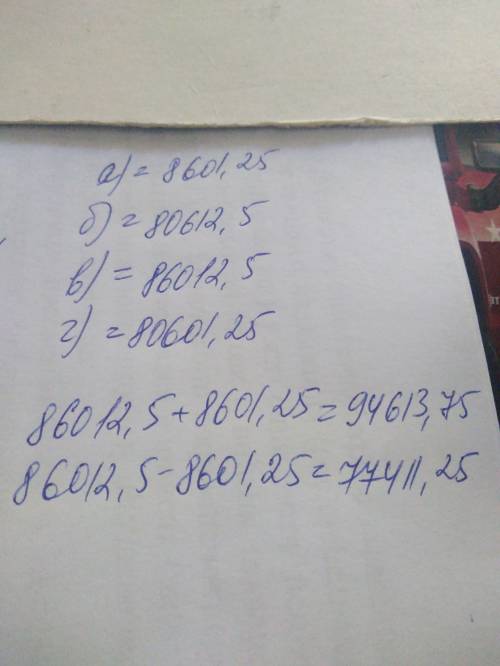 а) = 8601,25
б) = 80612,5
в) = 86012,5
г) = 80601,25
86012,5+8601,25=94613,75
86012,5-8601,25=77411,25